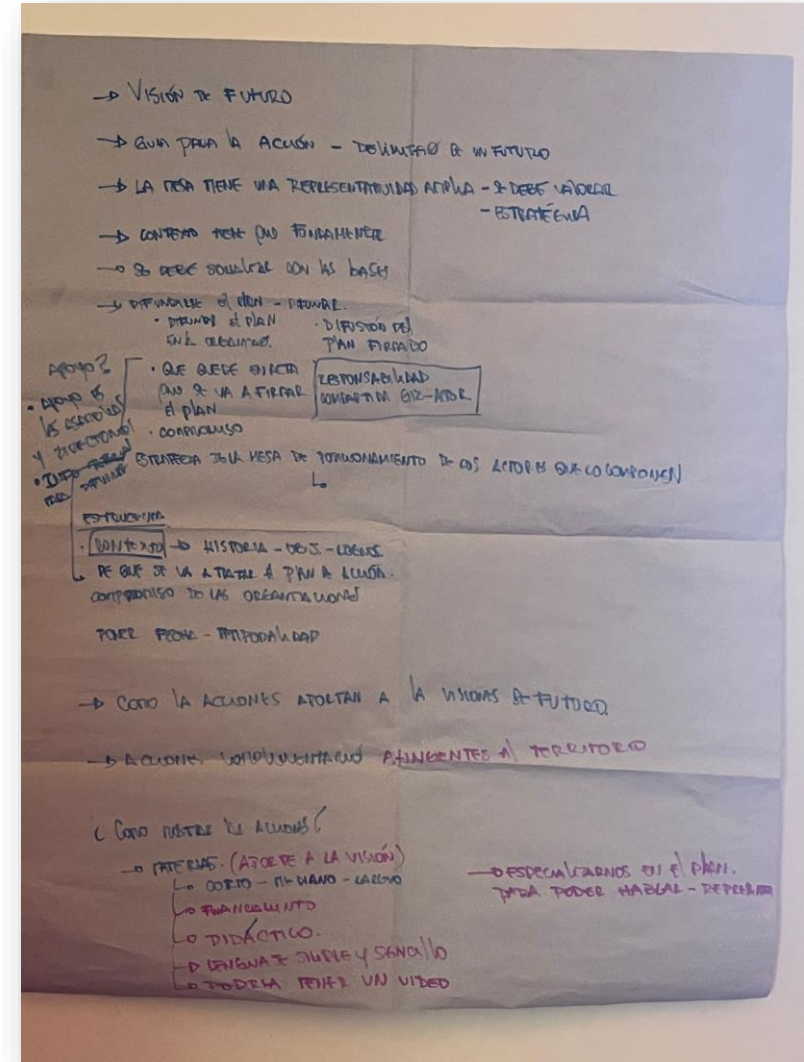 → VISIÓN DE FUTURO
→ GUIA PARA LA ACCIÓN - DE UN FUTURO
→ LA MESA TIENE UNA REPRESENTATIVIDAD AMPLIA - SE DEBE VALORAR
- ESTRATÉGICA
→ CONTEXTO TIENE QUE
→ SE DEBE SOCIALIZAR CON LAS BASES
→ EL PLAN -
• EL PLAN
• DIFUSIÓN DEL
EN LA
PLAN FIRMADO
APOYO?
• QUE QUEDE EN ACTA
QUE SE VA A FIRMAR
EL PLAN
• COMPROMISO
RESPONSABILIDAD
COMPARTIDA GIZ-
• APOYO
Y DIRECTORIOS
ESTRATEGIA DE LA MESA DE POSICIONAMIENTO DE LOS ACTORES QUE LO COMPONEN
ESTRUCTURA
• CONTEXTO → HISTORIA - OBJ. -
DE QUE SE VA A TRATAR EL PLAN DE ACCIÓN.
COMPROMISO DE LAS ORGANIZACIONES
PONER FECHA - TEMPORALIDAD
→ COMO LA ACCIONES APORTAN A LA VISIONES DE FUTURO.
→ ACCIONES ATINGENTES AL TERRITORIO
¿ COMO LAS ACCIONES?
→ MATERIAS. (APORTE A LA VISIÓN)
↳ CORTO - MEDIANO - LARGO
↳ FINANCIAMIENTO
↳ DIDÁCTICO.
↳ LENGUAJE SIMPLE Y SENCILLO
↳ PODRIA TENER UN VIDEO
→ ESPECIALIZARNOS EN EL PLAN.
PARA PODER HABLAR -